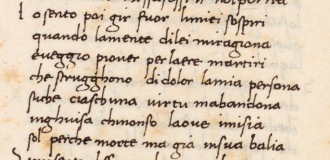 Io sento poi gir fuor limiei sospiri
quando lamente dilei miragiona
eveggio piover per laere martiri
che strugghono di dolor lamia persona
siche ciaschuna virtu mabandona
inghuisa chinonso laove imisia
sol perche morte ma gia insua balia